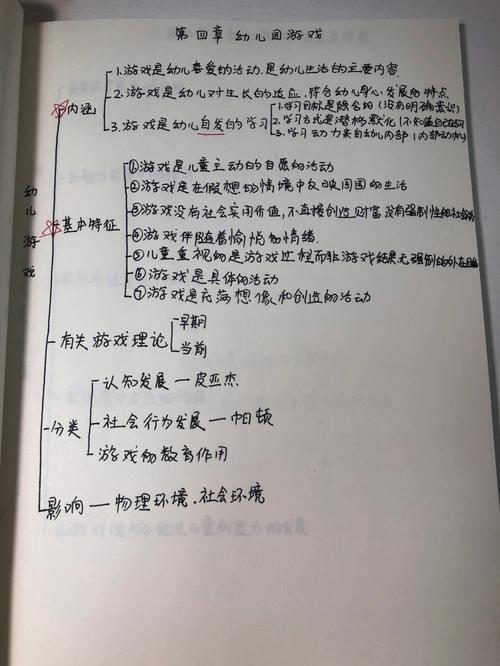 第四章 幼儿园游戏
幼儿游戏
内涵
1.游戏是幼儿喜爱的活动.是幼儿生活的主要内容.
2.游戏是幼儿对生长的适应,符合幼儿身心发展的特点.
3.游戏是幼儿自发的学习
1.学习目标是隐含的(没有明确意识)
2.学习方式是潜移默化
3.学习动力来自幼儿内部(内部动机)
基本特征
①游戏是儿童主动的自愿的活动
②游戏是在假想的情境中反映周围的生活
③游戏没有社会实用价值,不直接创造财富没有强制性的社会
④游戏伴随着愉悦的情绪.
⑤儿童重视的是游戏过程而非游戏结果无强制的外在目的
⑥游戏是具体的活动
⑦游戏是充满想像和创造的活动
有关游戏理论
早期
当前
分类
认知发展—皮亚杰
社会行为发展—帕顿
游戏的教育作用
影响—物理环境.社会环境